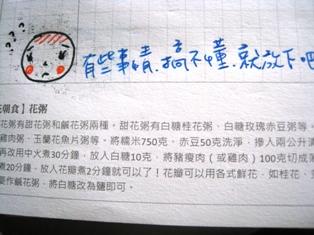 ???
有些事情.搞不懂.就放下吧
朝食】花粥
花粥有甜花粥和鹹花粥兩種。甜花粥有白糖桂花粥、白糖玫瑰赤豆粥等。
豬肉粥、玉蘭花魚片粥等。將糯米750克,赤豆50克洗淨,摻入兩公升清
再改用中火煮30分鐘,放入白糖10克,將豬瘦肉(或雞肉)100克切成薄
煮20分鐘,放入花瓣煮2分鐘就可以了!花瓣可以用各式鮮花,如桂花、
要作鹹花粥,將白糖改為鹽即可。